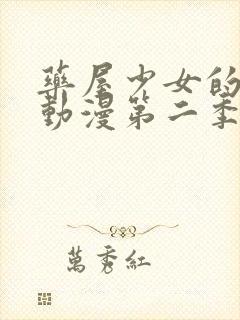 藥屋少女的
動漫第二季
萬秀紅